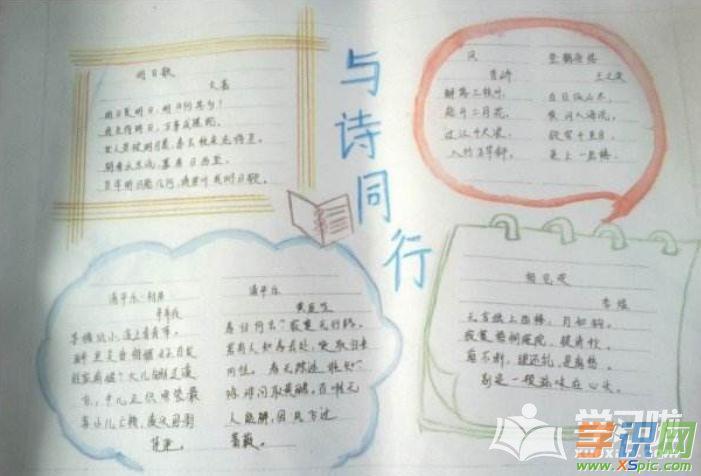 与诗同行
明日歌
文嘉
明日复明日,明日何其多!
我生待明日,万事成蹉跎。
世人若被明日累,春去秋来老将至。
朝看水东流,暮看日西坠。
百年明日能几何,请君听我明日歌。
风
李峤
解落三秋叶,
能开二月花。
过江千尺浪,
入竹万竿斜。
登鹳雀楼
王之涣
白日依山尽,
黄河入海流。
欲穷千里目,
更上一层楼。
清平乐·村居
辛弃疾
茅檐低小,溪上青青草。
醉里吴音相媚好,白发
谁家翁媪?大儿锄豆溪
东,中儿正织鸡笼,最
喜小儿亡赖,溪头卧剥
莲蓬。
清平乐
黄庭坚
春归何去?寂寞无行路。
若有人知春去处,唤取归来
同住。春无踪迹谁知?
除非问取黄鹂,百啭无
人能解,因风飞过
蔷薇。
相见欢
李煜
无言独上西楼,月如钩。
寂寞梧桐深院,锁清秋。
剪不断,理还乱,是离愁。
别是一般滋味在心头。
学习啦
学识网
www.XSpic.com